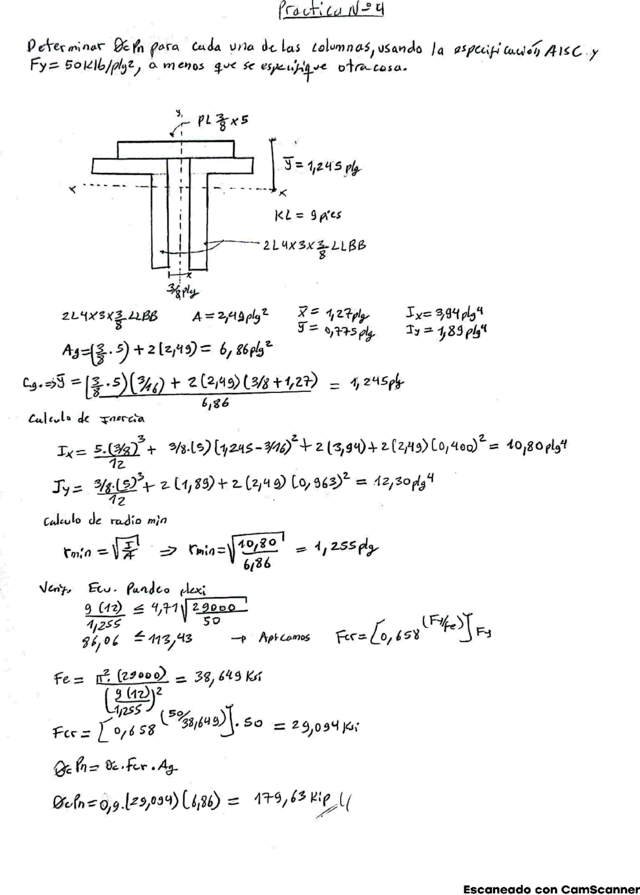 Practica Nº 4
Determinar ØcPn para cada una de las columnas, usando la especificación AISC y
Fy = 50Klb/plg², a menos que se especifique otra cosa.
y
PL 3/8 x 5
ȳ = 1,245 plg
x
x
KL = 9 pies
2L4X3X3/8 LLBB
3/8 plg
2L4X3X3/8 LLBB A = 2,49 plg² x̄ = 1,27plg Ix = 3,94 plg⁴
ȳ = 0,775 plg Iy = 1,89 plg⁴
Ag = (3/8 · 5) + 2(2,49) = 6,86 plg²
Cg. => ȳ = (3/8 · 5)(3/16) + 2(2,49)(3/8 + 1,27) / 6,86 = 1,245 plg
Calculo de Inercia
Ix = 5·(3/8)³/12 + 3/8·(5)(1,245 - 3/16)² + 2(3,94) + 2(2,49)(0,400)² = 10,80 plg⁴
Iy = 3/8·(5)³/12 + 2(1,89) + 2(2,49)(0,963)² = 12,30 plg⁴
Calculo de radio min
rmin = √(I/A) => rmin = √(10,80/6,86) = 1,255 plg
Ecu. Pandeo flexi
9(12)/1,255 ≤ 4,71 √(29000/50)
86,06 ≤ 113,43 → Aplicamos Fcr = [0,658^(Fy/Fe)] Fy
Fe = π²·(29000) / (9(12)/1,255)² = 38,649 Ksi
Fcr = [0,658^(50/38,649)] · 50 = 29,094 Ksi
ØcPn = Øc · Fcr · Ag
ØcPn = 0,9·(29,094)(6,86) = 179,63 Kip
Escaneado con CamScanner